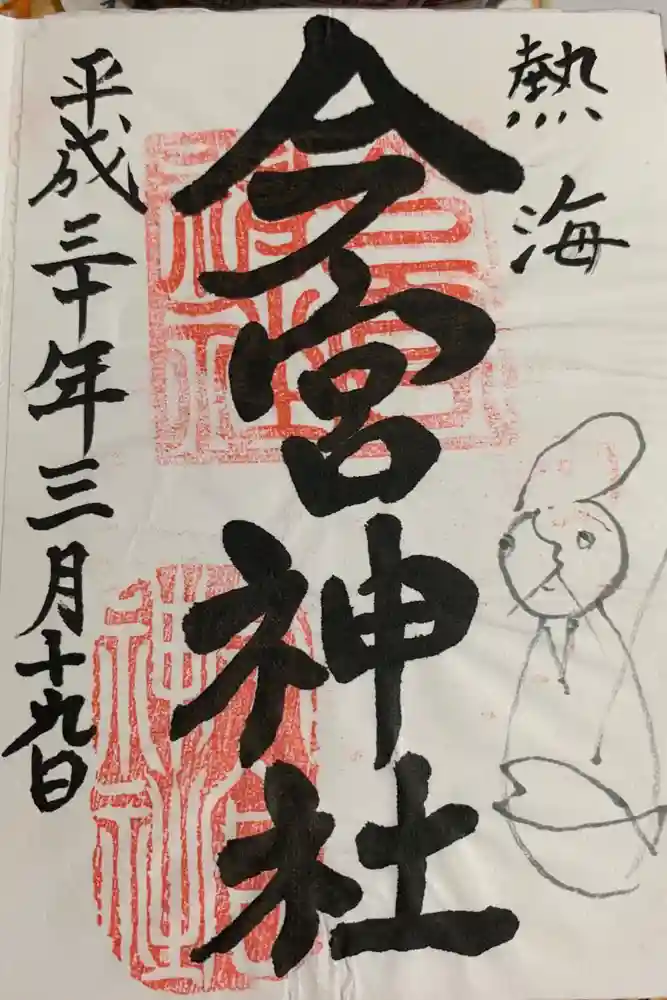 熱海
今宮神社
平成三十年三月十九日